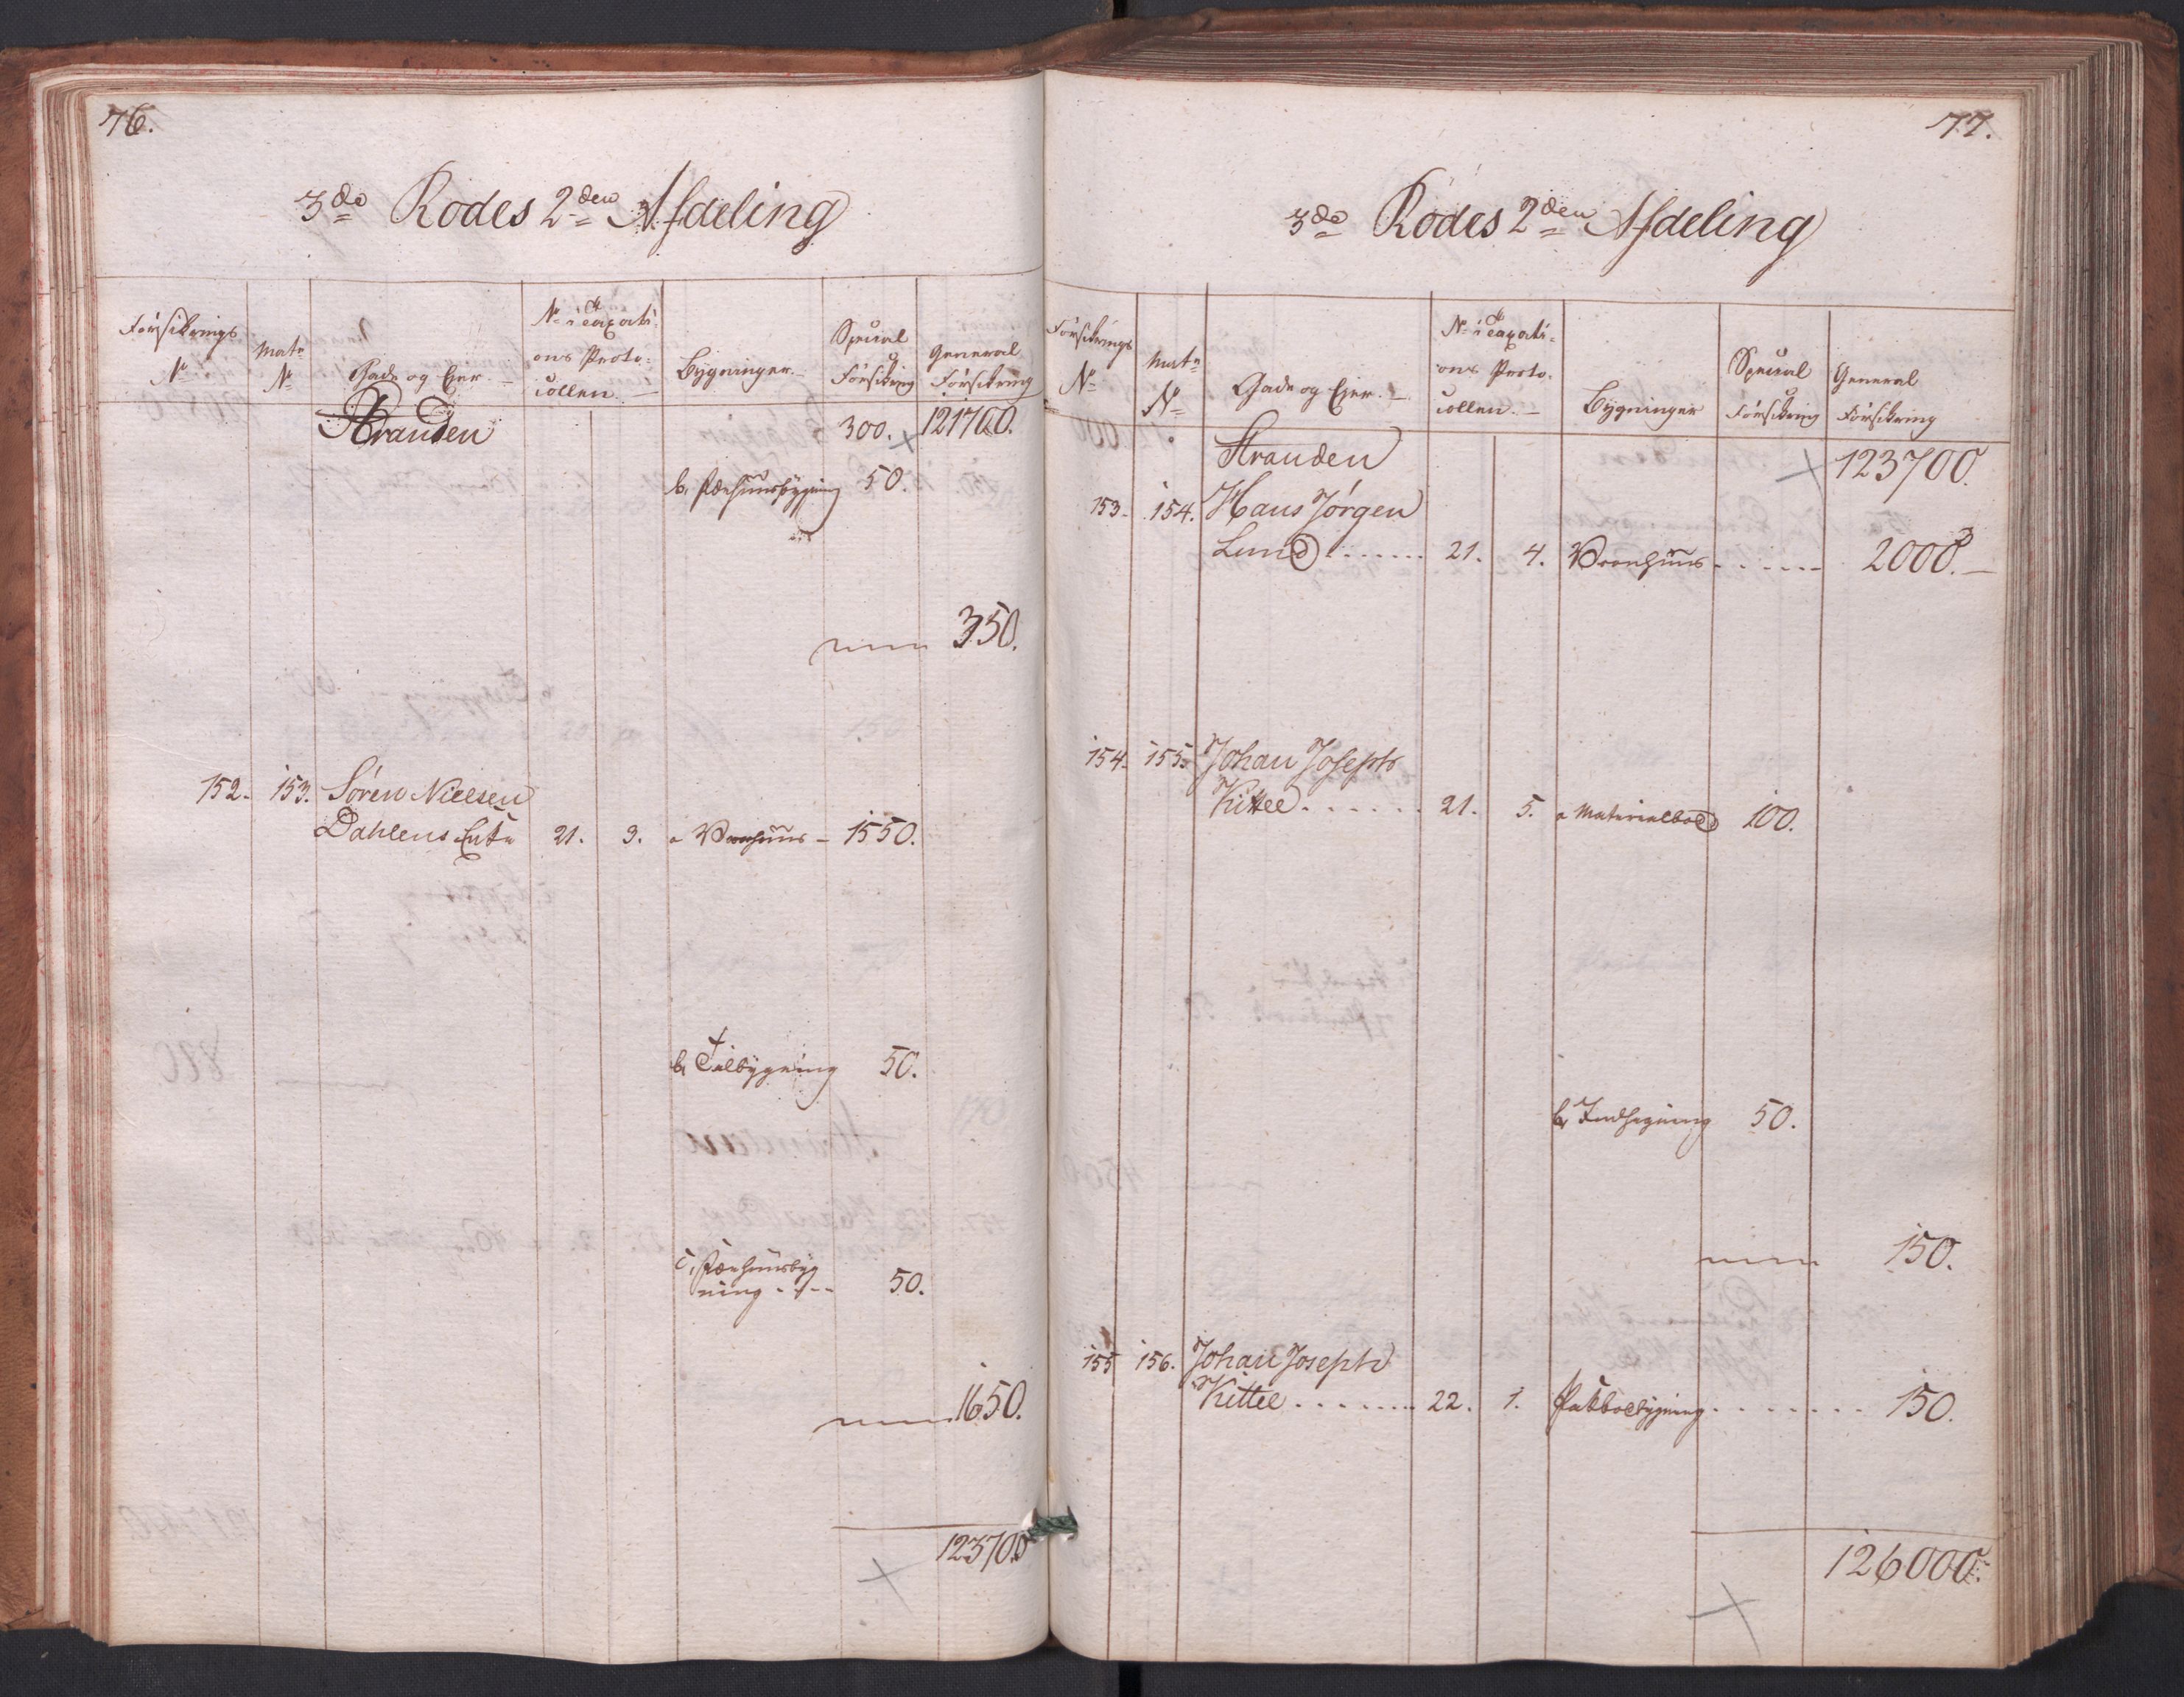 76.
3de Rodes 2den Afdeling
Forsikrings No
Matr No
Gade og Ejer.
No i Taxations Protocollen.
Bygninger.
Special Forsikring
General Forsikring
Stranden 300. 121700.
b, Pakhuusbygning 50.
350.
152. 153. Sören Nielsen
Dahlens Enke 21. 3. a Vaanhuus - 1550.
b, Tilbygning 50.
c, Pakhuusbyg
ning - - - 50.
1650.
123700
77.
3de Rodes 2den Afdeling
Forsikrings No
Matr No
Gade og Ejer.
No i Taxations Protocollen.
Bygninger
Special Forsikring
General Forsikring
Stranden 123700.
153. 154. Hans Jörgen
Lund . . . . . . 21. 4. Vaanhuus - - - - - 2000.
154. 155. Johan Joseph
Kittel . . . . . . 21. 5. a Materialbod 100.
b, Indhegning 50.
150.
155 156. Johan Joseph
Kittel . . . . . . . 22. 1. Pakbodbygning . . . . . . . 150.
126000.